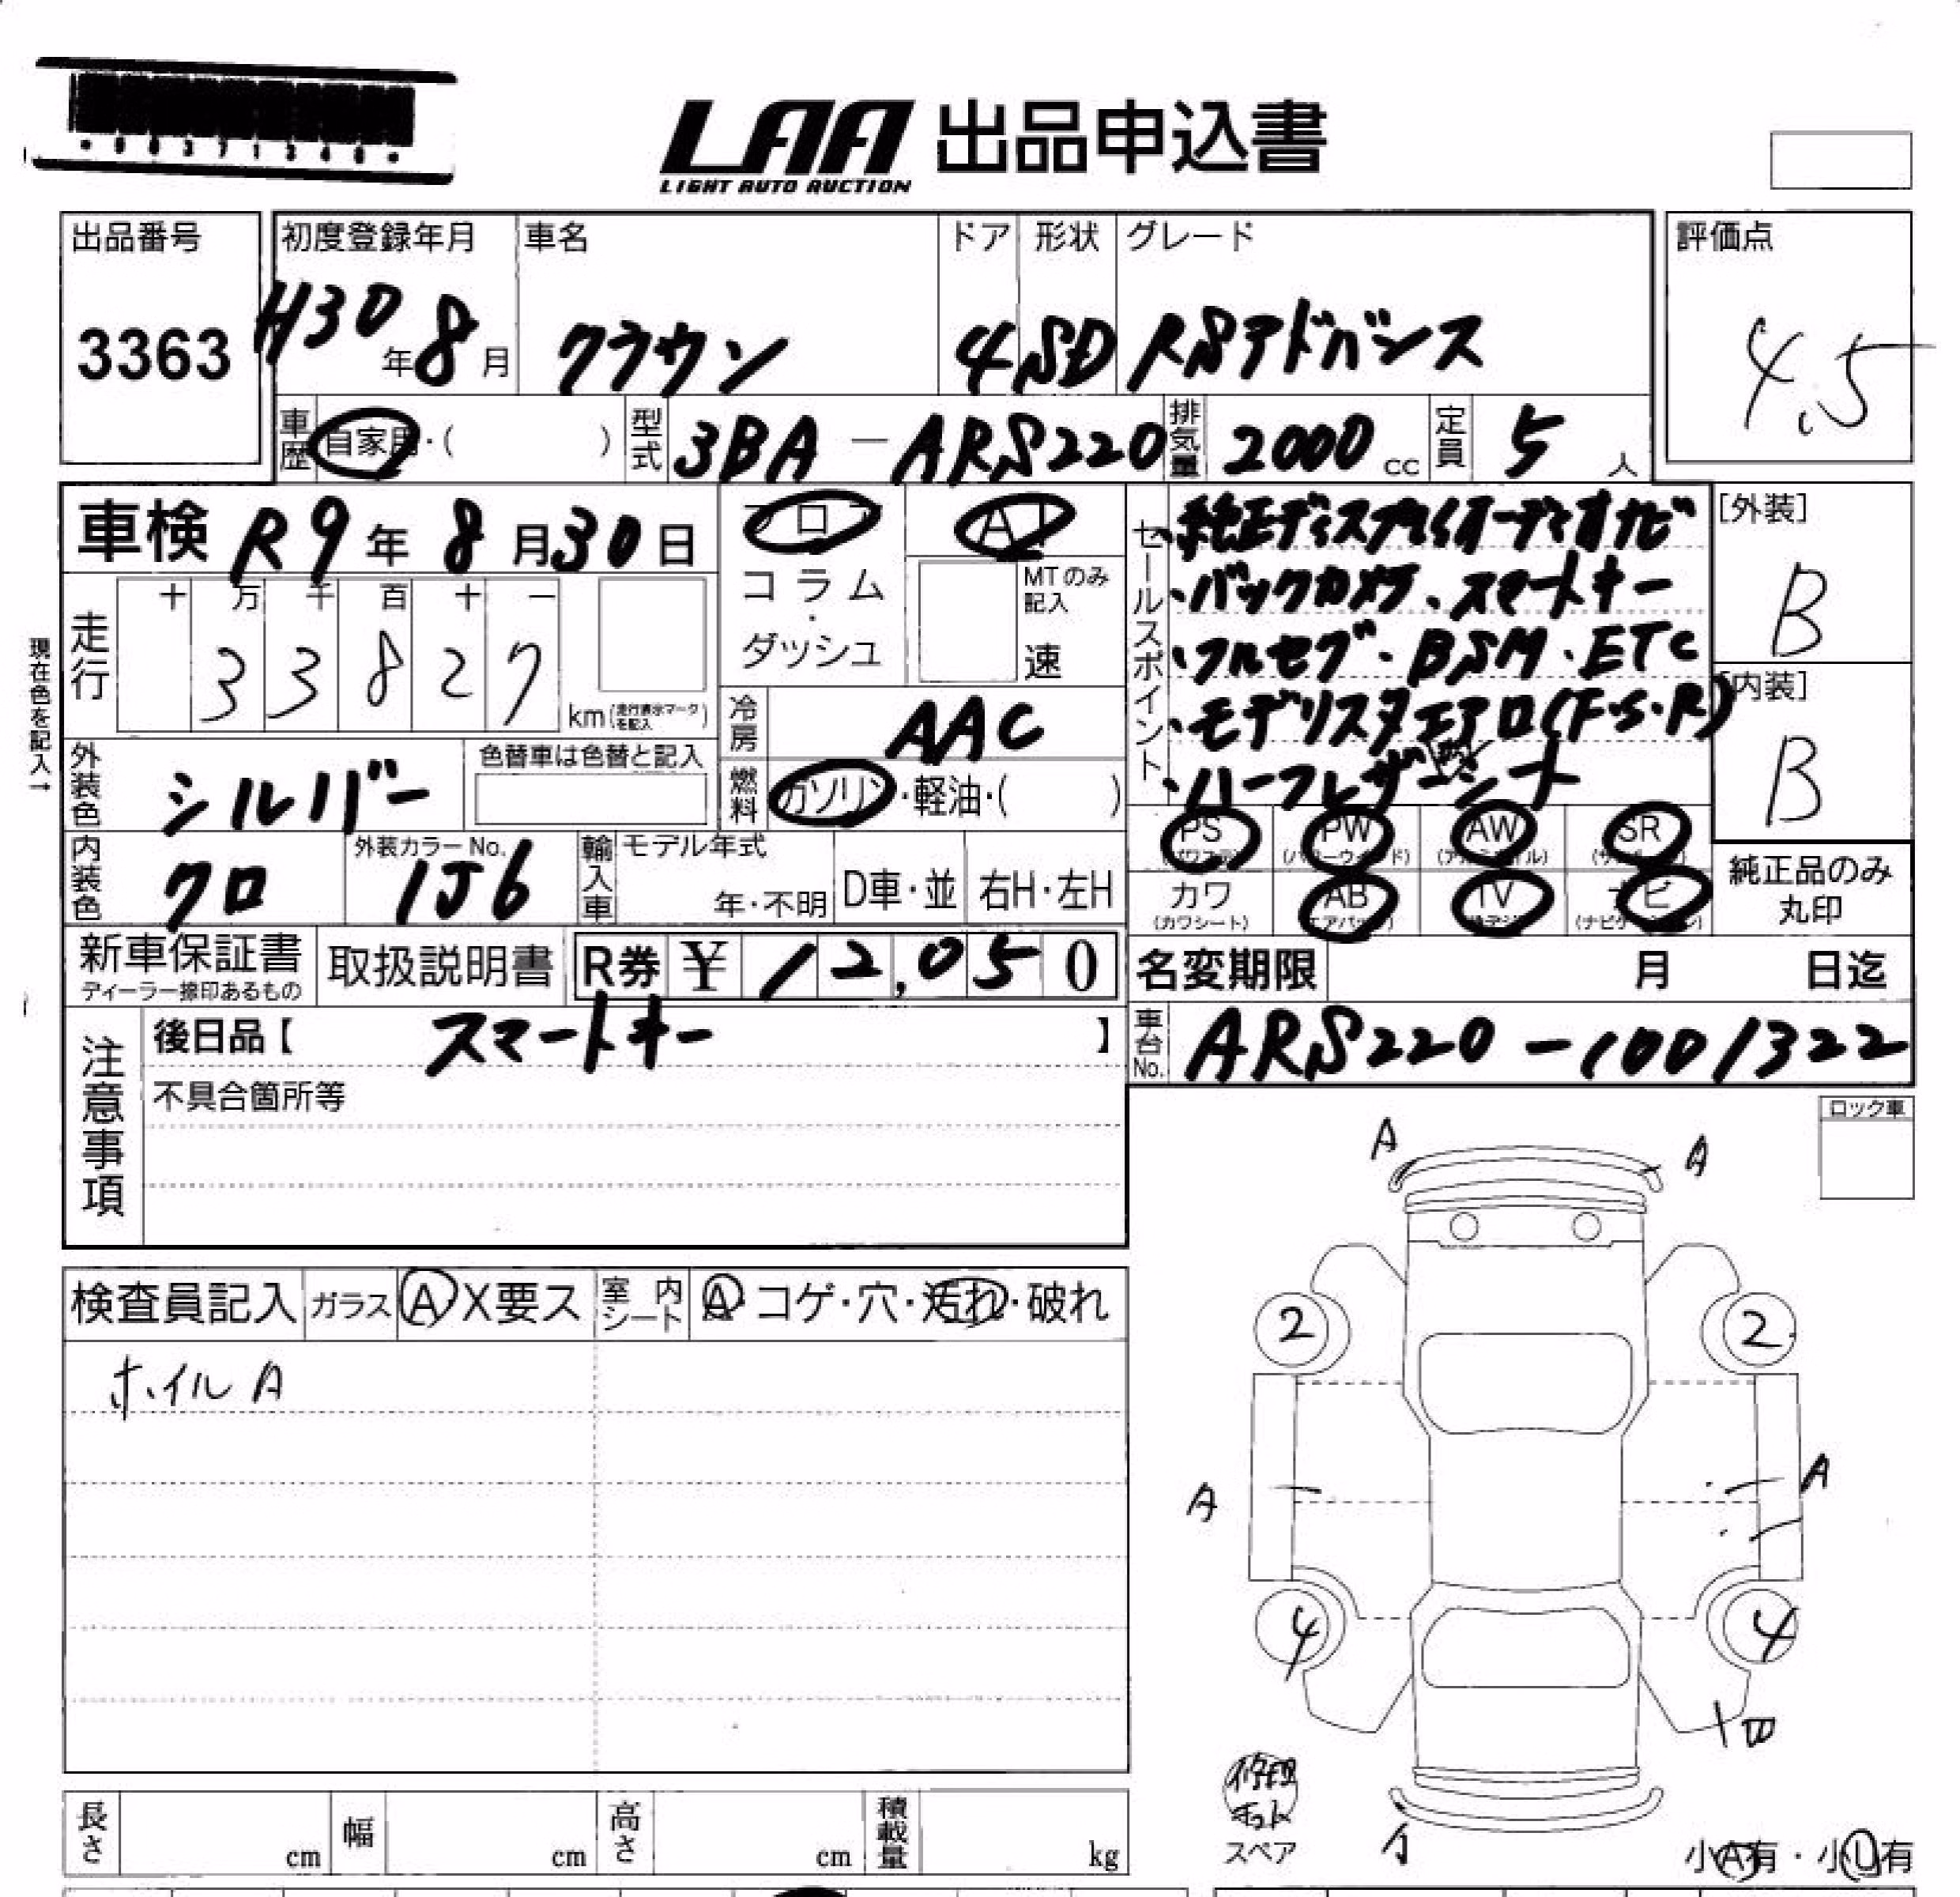 LAA 出品申込書
LIGHT AUTO AUCTION
出品番号
3363
初度登録年月
H30年8月
車名
クラウン
ドア
4
形状
SD
グレード
RSアドバンス
評価点
4.5
車歴
自家用・( )
型式
3BA - ARS220
排気量
2000 cc
定員
5 人
車検 R9年 8月30日
フロア
コラム
・
ダッシュ
AT
MTのみ記入
速
現在色を記入→
走行
十 万 千 百 十 一
3 3 8 2 7
km(走行表示マークを記入)
冷房
AAC
燃料
ガソリン・軽油・( )
外装色
シルバー
色替車は色替と記入
内装色
クロ
外装カラーNo.
1J6
輸入車
モデル年式
年・不明
D車・並
右H・左H
セールスポイント
・純正ディスプレイオーディオナビ
・バックカメラ、スマートキー
・フルセグ・BSM・ETC
・モデリスタエアロ(F・S・R)
・ハーフレザーシート
[外装]
B
[内装]
B
PS
PW
AW
SR
カワ
(カワシート)
AB
TV
ナビ
純正品のみ
丸印
新車保証書
ディーラー捺印あるもの
取扱説明書
R券 ¥ 12,050
名変期限 月 日迄
車台No.
ARS220-1001322
注意事項
後日品【 スマートキー 】
不具合箇所等
ロック車
検査員記入
ガラス
A X要ス
室内シート
A・コゲ・穴・汚れ・破れ
ホイルA
A A
2 2
A A
4 4
修理
キット
スペア
小A有・小U有
長さ cm
幅 cm
高さ cm
積載量 kg